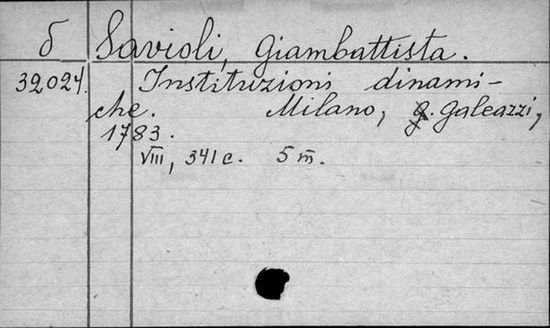 б Savioli, Giambattista.
32024. Instituzioni dinami-
che. Milano, G. Galeazzi,
1783.
VIII, 341 c. 5 т.